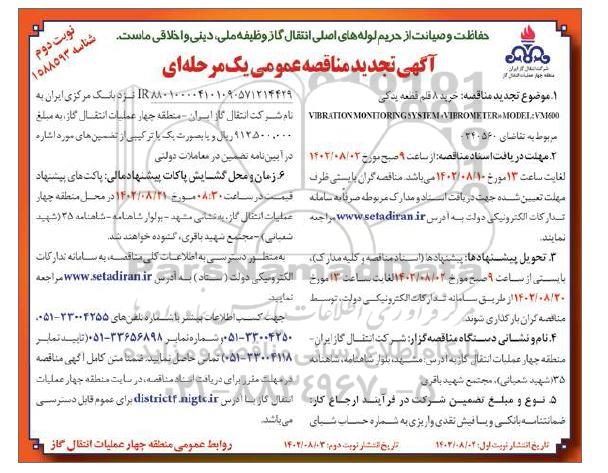 حفاظت و صیانت از حریم لوله‌های اصلی انتقال گاز وظیفه ملی، دینی و اخلاقی ماست.
نوبت دوم
شناسه ۱۵۸۸۵۹۳
شرکت انتقال گاز ایران
منطقه چهار عملیات انتقال گاز
آگهی تجدید مناقصه عمومی یک مرحله‌ای
۱. موضوع تجدید مناقصه: خرید ۸ قلم قطعه یدکی
VIBRATION MONITORING SYSTEM «VIBROMETER» MODEL: VM600
مربوط به تقاضای ۰۲۴۰۵۶۰
۲. مهلت دریافت اسناد مناقصه: از ساعت ۹ صبح مورخ ۱۴۰۲/۰۸/۰۲
لغایت ساعت ۱۳ مورخ ۱۴۰۲/۰۸/۱۰ می‌باشد. مناقصه گران بایستی ظرف
مهلت تعیین شده جهت دریافت اسناد و مدارک مربوطه صرفاً به سامانه
تدارکات الکترونیکی دولت به آدرس www.setadiran.ir مراجعه
نمایند.
۳. تحویل پیشنهادها: پیشنهادها (اسناد مناقصه و کلیه مدارک)،
بایستی از ساعت ۹ صبح مورخ ۱۴۰۲/۰۸/۰۲ لغایت ساعت ۱۳ مورخ
۱۴۰۲/۰۸/۲۰ از طریق سامانه تدارکات الکترونیکی دولت، توسط
مناقصه گران بارگذاری شوند.
۴. نام و نشانی دستگاه مناقصه گزار: شرکت انتقال گاز ایران-
منطقه چهار عملیات انتقال گاز به آدرس: مشهد، بلوار شاهنامه، شاهنامه
۳۵ (شهید شعبانی)، مجتمع شهید باقری
۵. نوع و مبلغ تضمین شرکت در فرآیند ارجاع کار:
ضمانتنامه بانکی و یا فیش نقدی واریزی به شماره حساب شبای
IR ۸۸۰۱۰۰۰۰۴۱۰۱۰۹۰۵۷۱۲۱۴۴۲۹ نزد بانک مرکزی ایران به
نام شرکت انتقال گاز ایران - منطقه چهار عملیات انتقال گاز، به مبلغ
۹۱۲,۵۰۰,۰۰۰ ریال و یا بصورت یک یا ترکیبی از تضمین‌های مورد اشاره
در آیین‌نامه تضمین در معاملات دولتی
۶. زمان و محل گشایش پاکات پیشنهاد مالی: پاکت‌های پیشنهاد
قیمت در ساعت ۰۸:۳۰ مورخ ۱۴۰۲/۰۸/۲۱ در محل منطقه چهار
عملیات انتقال گاز، به نشانی مشهد - بولوار شاهنامه - شاهنامه ۳۵ (شهید
شعبانی) - مجتمع شهید باقری، گشوده خواهند شد.
به منظور دسترسی به اطلاعات کلی مناقصه، به سامانه تدارکات
الکترونیکی دولت (ستاد) به آدرس www.setadiran.ir مراجعه
نمایید.
جهت کسب اطلاعات بیشتر با شماره تلفن‌های ۳۳۰۰۴۲۵۵-۰۵۱،
۳۳۰۰۴۲۵۰-۰۵۱ و شماره نمابر ۳۳۶۵۶۸۹۸-۰۵۱ (تایید نمابر
۳۳۰۰۴۱۱۸-۰۵۱) تماس حاصل نمایید. ضمناً متن کامل آگهی مناقصه
در مهلت مقرر برای دریافت اسناد مناقصه، در سایت منطقه چهار عملیات
انتقال گاز به آدرس districtf.nigtc.ir برای عموم قابل دسترسی
می‌باشد.
تاریخ انتشار نوبت اول: ۱۴۰۲/۰۸/۰۲
تاریخ انتشار نوبت دوم: ۱۴۰۲/۰۸/۰۳
روابط عمومی منطقه چهار عملیات انتقال گاز
۰۲۱-۸۸۳۴۹۶۷۰-۵